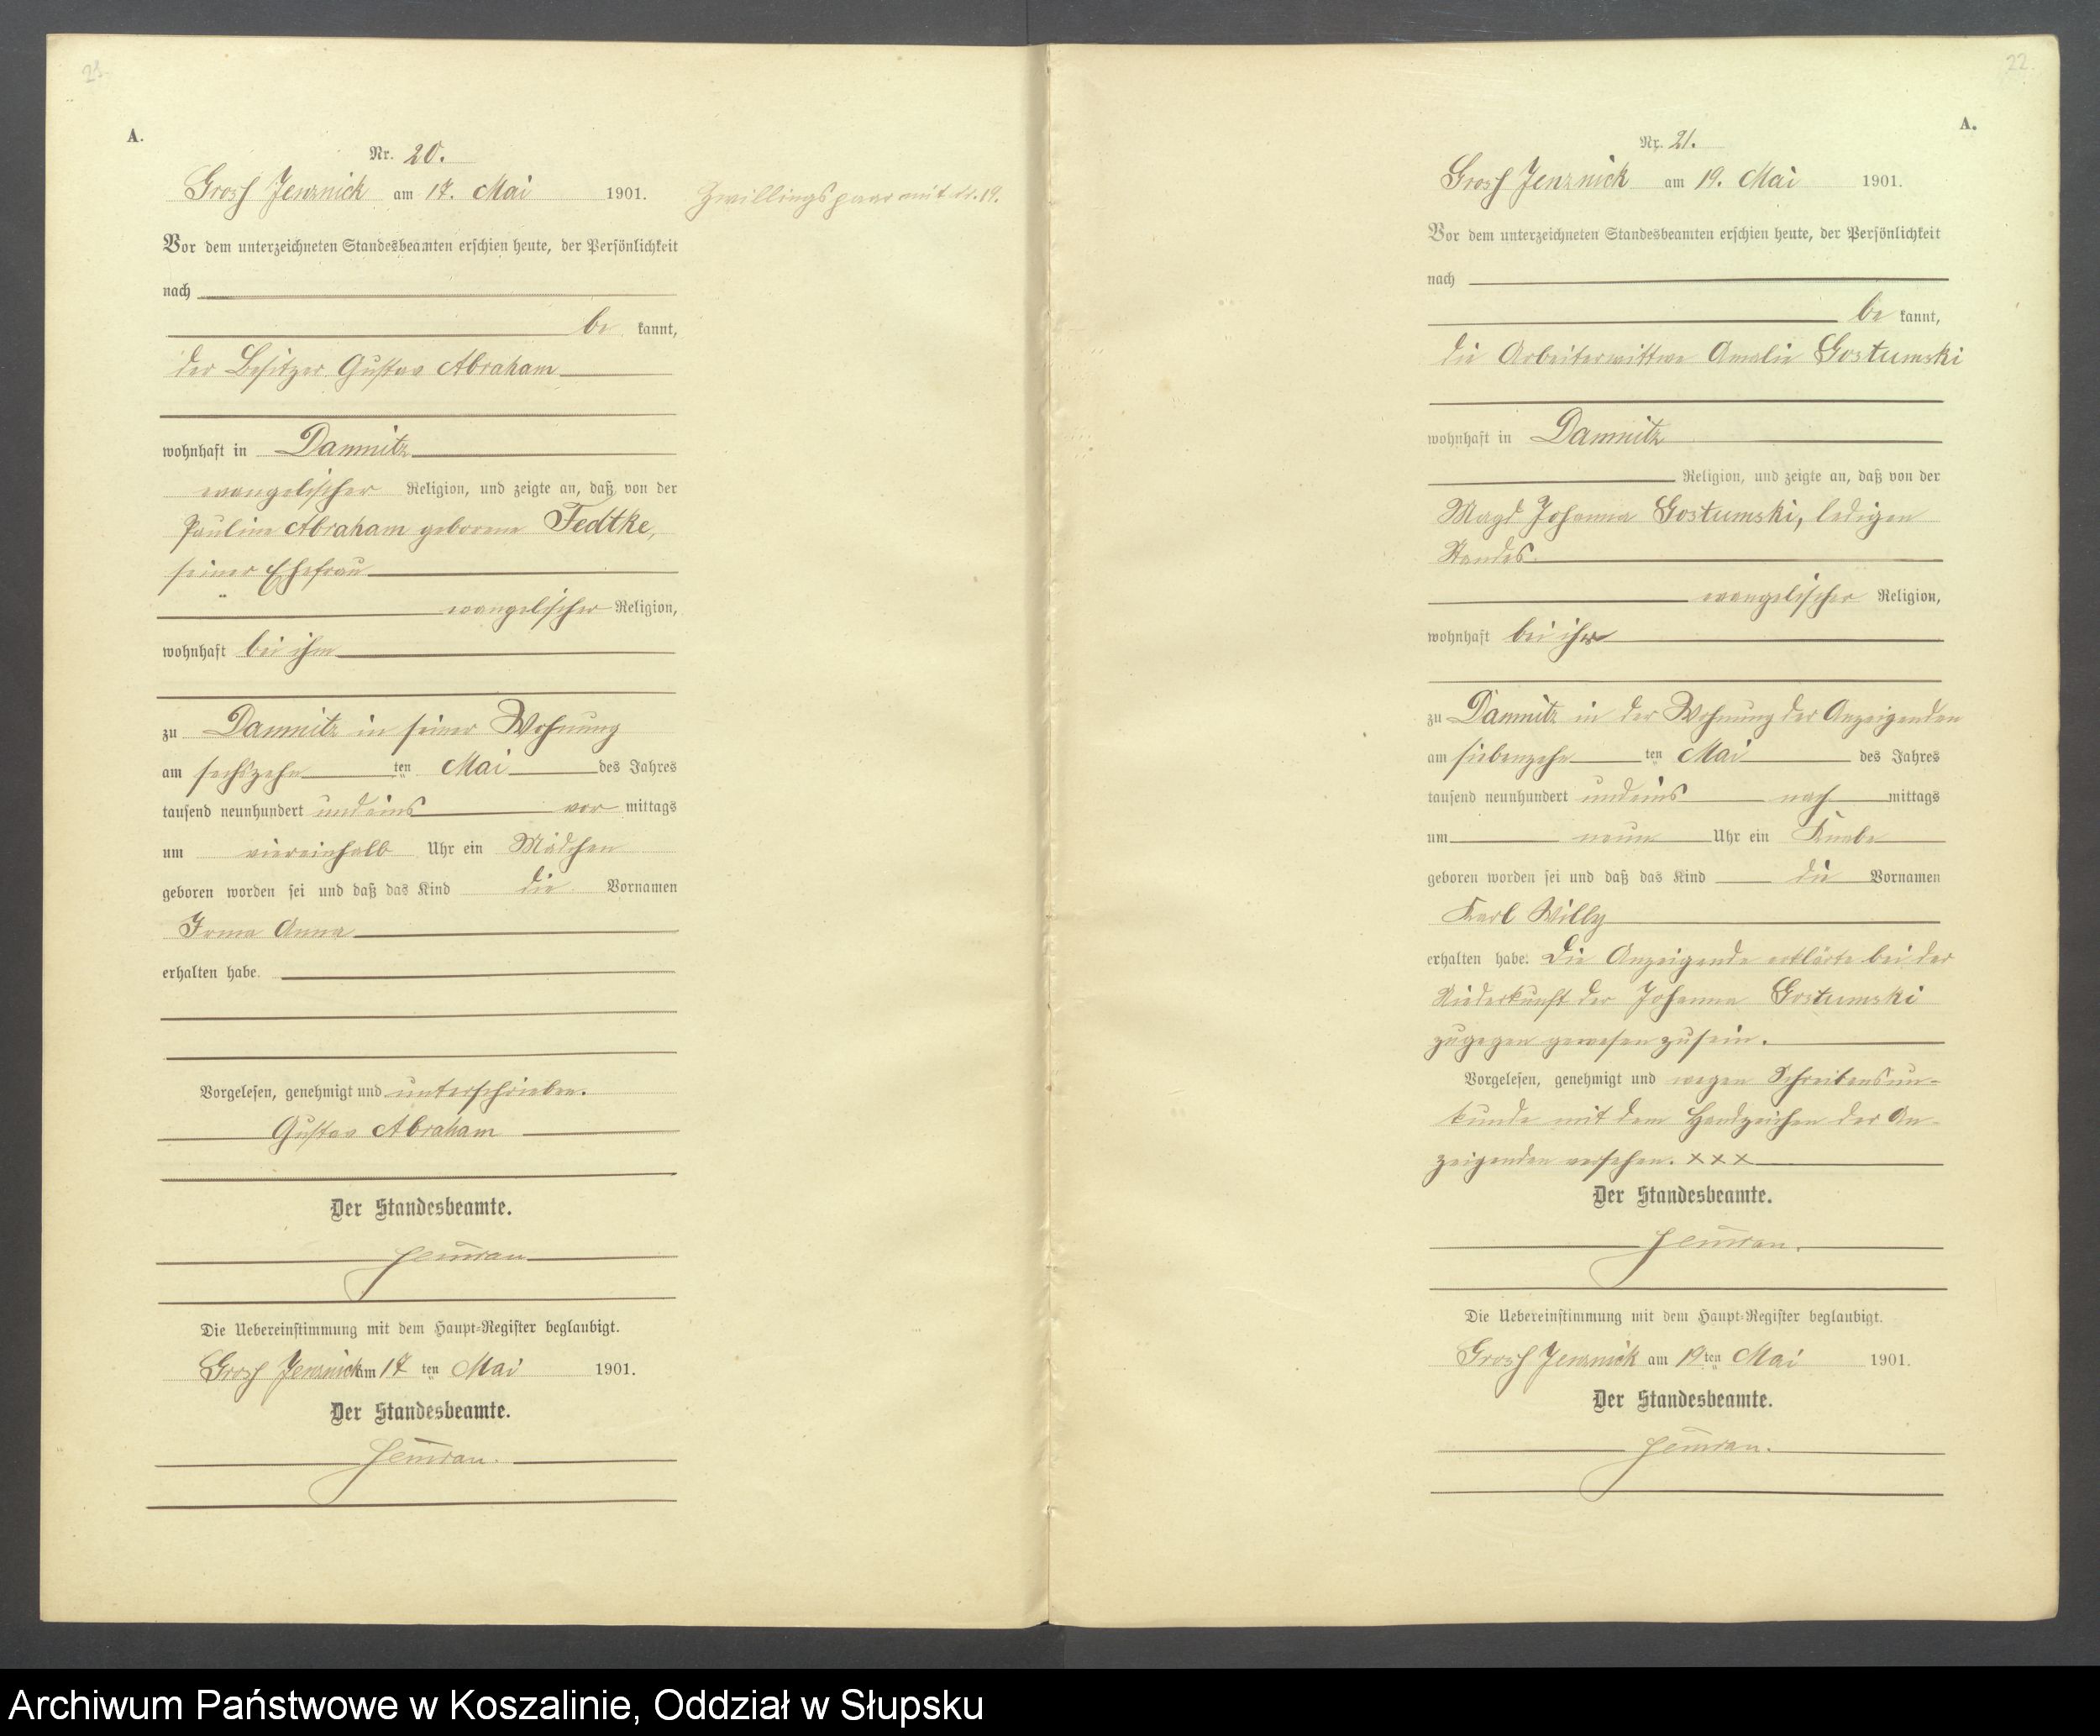 A.
Nr. 20.
Grosz Jenznick am 17. Mai 1901.
Zwillingspaar mit Nr. 19.
Vor dem unterzeichneten Standesbeamten erschien heute, der Persönlichkeit
nach
be kannt,
der Besitzer Gustav Abraham
wohnhaft in Damnitz
evangelischer Religion, und zeigte an, daß von der
Pauline Abraham geborene Fedtke,
seiner Ehefrau
evangelischer Religion,
wohnhaft bei ihm
zu Damnitz in seiner Wohnung
am sechszehn ten Mai des Jahres
tausend neunhundert undeins vor mittags
um viereinhalb Uhr ein Mädchen
geboren worden sei und daß das Kind die Vornamen
Irma Anna
erhalten habe.
Vorgelesen, genehmigt und unterschrieben.
Gustav Abraham
Der Standesbeamte.
Die Uebereinstimmung mit dem Haupt-Register beglaubigt.
Grosz Jenznick am 17 ten Mai 1901.
Der Standesbeamte.
22.
A.
Nr. 21.
Grosz Jenznick am 19. Mai 1901.
Vor dem unterzeichneten Standesbeamten erschien heute, der Persönlichkeit
nach
be kannt,
die Arbeiterwittwe Amalie Gostumski
wohnhaft in Damnitz
Religion, und zeigte an, daß von der
Magd Johanna Gostumski, ledigen
Standes
evangelischer Religion,
wohnhaft bei ihr
zu Damnitz in der Wohnung der Anzeigenden
am siebenzehn ten Mai des Jahres
tausend neunhundert undeins nach mittags
um neun Uhr ein Knabe
geboren worden sei und daß das Kind die Vornamen
Karl Willy
erhalten habe. Die Anzeigende erklärte bei der
Niederkunft der Johanna Gostumski
zugegen gewesen zu sein.
Vorgelesen, genehmigt und wegen Schreibensun-
kunde mit dem Handzeichen der An-
zeigenden versehen. XXX
Der Standesbeamte.
Die Uebereinstimmung mit dem Haupt-Register beglaubigt.
Grosz Jenznick am 19 ten Mai 1901.
Der Standesbeamte.
Archiwum Państwowe w Koszalinie, Oddział w Słupsku